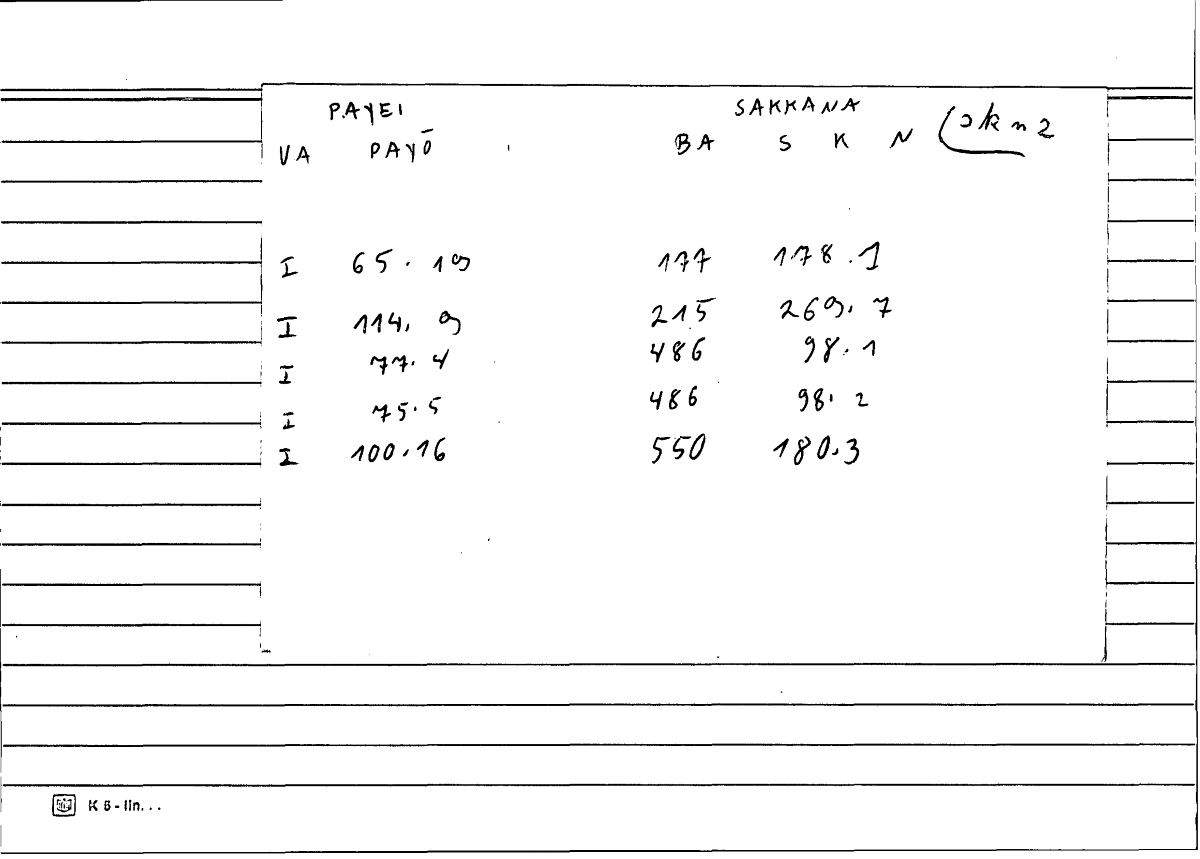 PAYEI SAKKANA
VA PAYŌ BA S K N
I 65.19 177 178.1
I 114.9 215 269.7
I 77.4 486 98.1
I 75.5 486 98.2
I 100.16 550 180.3
K 6 - lin...